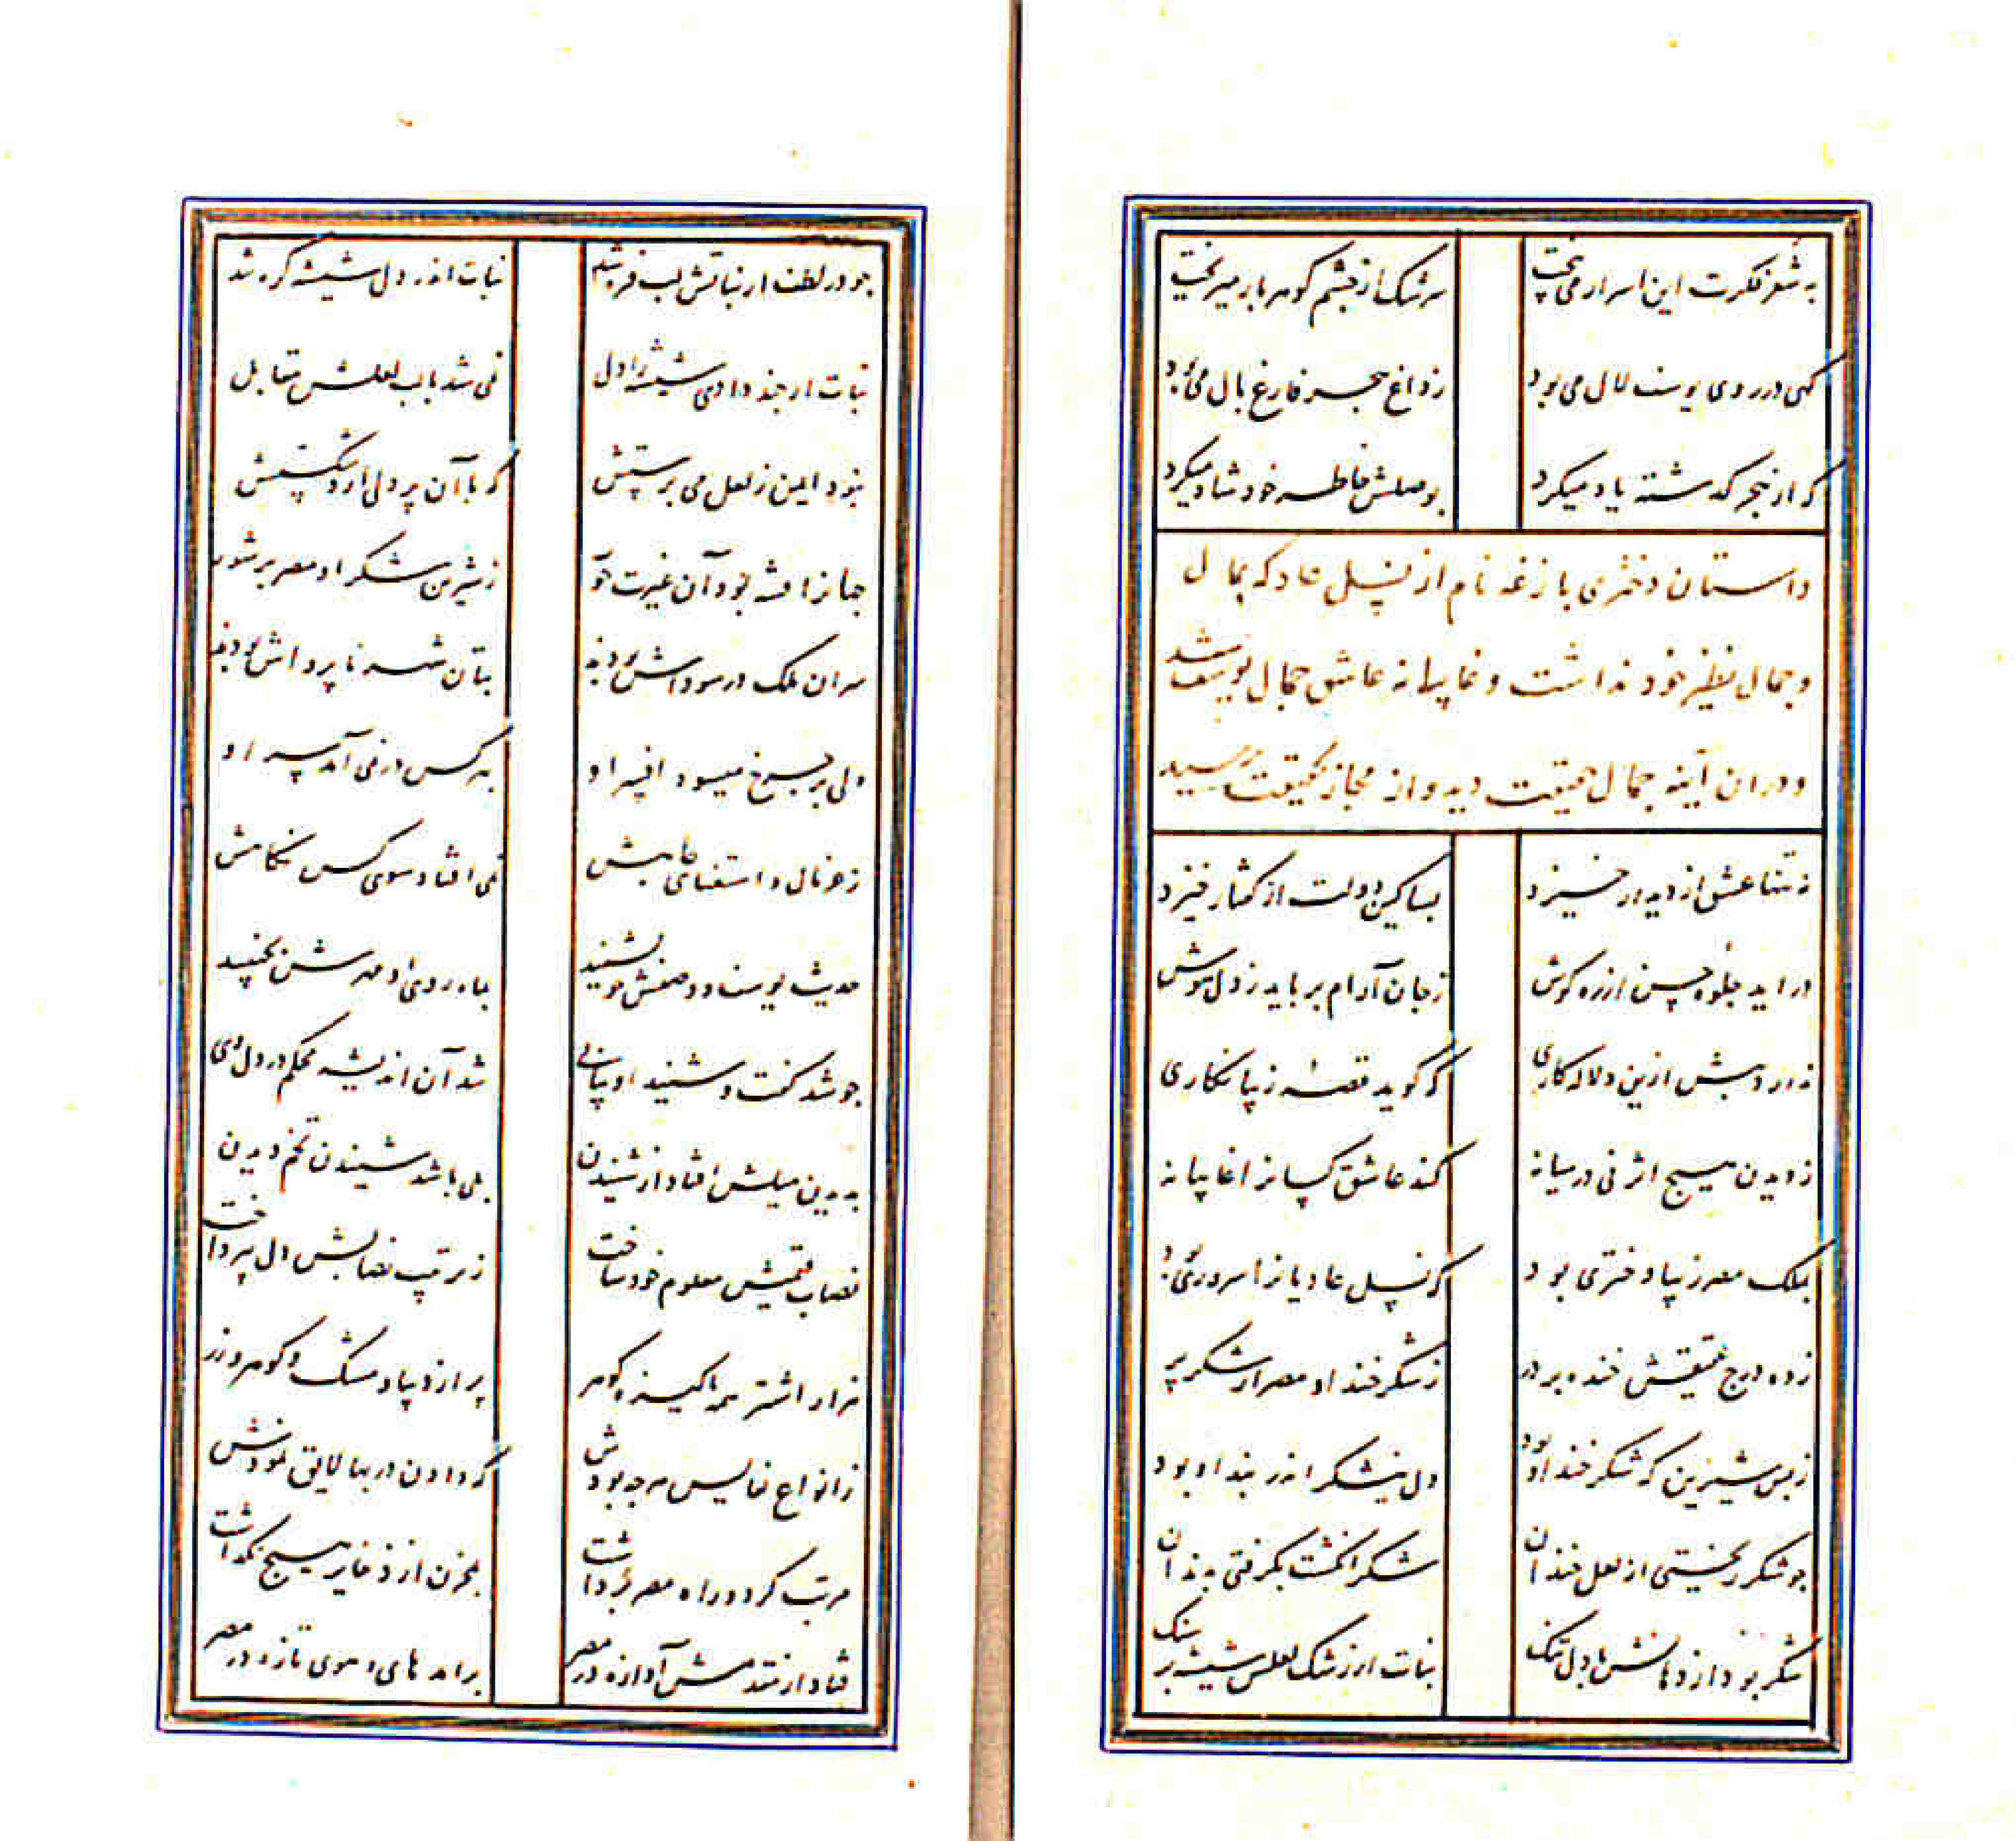 به شعر فکرت این اسرار می پخت سرشک از چشم کوهربار میریخت
کهی در روی یوسف لال می بود ز داغ هجر فارغ بال می بود
که از هجر کذشته یاد میکرد بوصلش خاطر خود شاد میکرد
داستان دختری بازغه نام از نسل عاد که بمال
و جمال نظیر خود نداشت و غایبانه عاشق جمال یوسف شد
و در آن آینه جمال حقیقت دید و از مجاز بحقیقت رسید
نه تنها عشق از دیدار خیزد بسا کین دولت از کفتار خیزد
در اید جلوه حسن از ره کوش ز جان آرام بر باید ز دل هوش
ندارد پیش ازین دلاله کاری که کوید قصه زیبا نکاری
ز دیدن هیچ اثر نی در میانه کند عاشق کسانرا غایبانه
بملک مصر زیبا دختری بود که نسل عادیانرا سروری بود
زده درج عقیقش خنده بر در ز شکر خند او مصر از شکر پر
ز بس شیرین که شکر خند او بود دل نیشکر اندر بند او بود
جو شکر ریختی از لعل خندان شکر انکشت بکرفتی بدندان
شکر بود از دهانش با دل تنک نبات از رشک لعلش شیشه بر سنک
جو در لطف از نباتش لب فروشد نبات اندر دل شیشه کره شد
نبات ار جند دادی شیشه را دل نمی شد با لب لعلش مقابل
نبود ایمن ز لعل می پرستش که با آن پردلی آرد شکستش
جهانرا فتنه بود آن غیرت حور ز شیرین شکر او مصر پر شور
سران ملک در سوداش بودند بتان شهر ناپرواش بودند
ولی بر چرخ میسود افسر او به هر کس در نمی آمد سر او
ز عز مال و استغنای جاهش نمی افتاد سوی کس نکاهش
حدیث یوسف و وصفش جو بشنید بماه روی او مهرش بجنبید
جو شد کفت و شنید او پیاپی شد آن اندیشه محکم در دل وی
بدیدن میلش افتاد از شنیدن بلی باشد شنیدن تخم دیدن
نصاب قیمتش معلوم خود ساخت ز ترتیب نصابش دل بپرداخت
هزار اشتر همه پاکیزه کوهر پر از دیبا و مشک و کوهر و زر
ز انواع نفایس هر جه بودش که دادن در بها لایق نمودش
مرتب کرد و راه مصر برداشت بمخزن از ذخایر هیچ نکذاشت
فتاد از مقدمش آوازه در مصر برامد های و هوی تازه در مصر